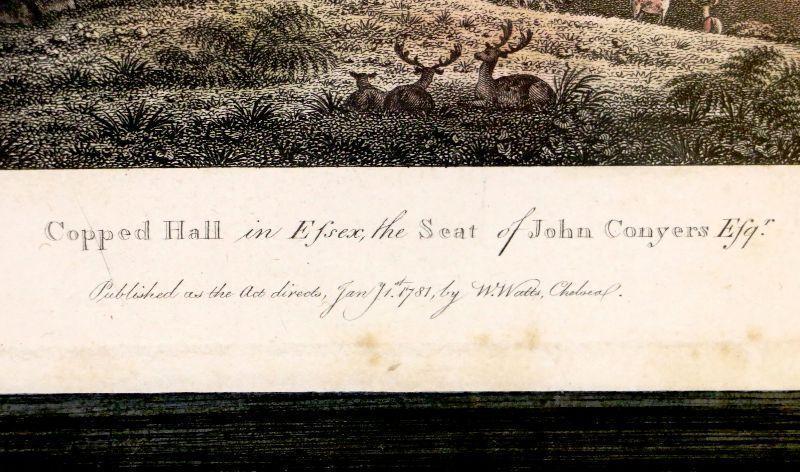 Copped Hall in Eſsex, the Seat of John Conyers Eſqr.
Published as the Act directs, Jany 1st 1781, by W. Watts, Chelsea.